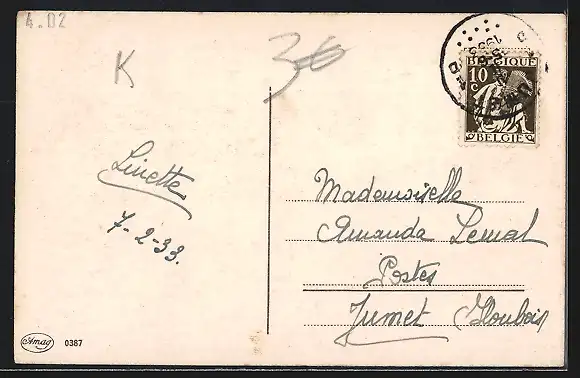 4.02
K
36
1933
BELGIQUE
10
C
BELGIË
Linette
7-2-33.
Mademoiselle
Amanda Lemal
Postes
Jumet Houbois
Amag 0387